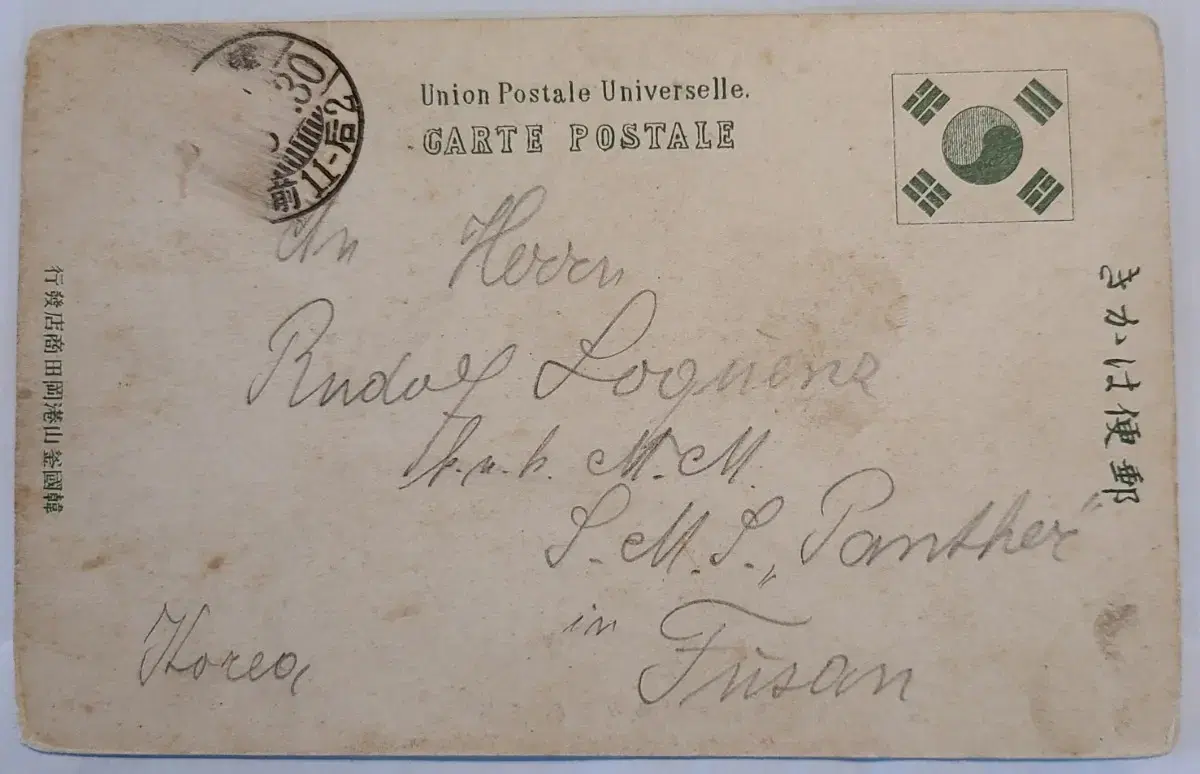 Union Postale Universelle.
CARTE POSTALE
.30
前11-后2
An Herrn
Rudolf
k.u.k. M.M.
S.M.S. „Panther"
in Fusan
Korea
郵便はかき
韓國釜山港岡田商店發行